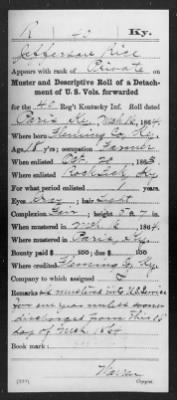 R 40 Ky.
Jefferson Rise
Appears with rank of Private on
Muster and Descriptive Roll of a Detach-
ment of U. S. Vols. forwarded
for the 40 Reg't Kentucky Inf. Roll dated
Paris Ky, Mch 16, 1864
Where born Fleming Co, Ky.
Age 18 y'rs; occupation Farmer
When enlisted Oct. 20, 1863.
Where enlisted Ky
For what period enlisted 1 years.
Eyes Gray; hair Light
Complexion Fair; height 5 ft. 7 in.
When mustered in Mch 16, 1864.
Where mustered in Paris, Ky.
Bounty paid $ 100; due $ 100
Where credited Fleming Co, Ky.
Company to which assigned
Remarks: mustered into U.S. Service
for one year unless sooner
discharged from this 16
day of Mch 1864
Book mark:
Copyist.